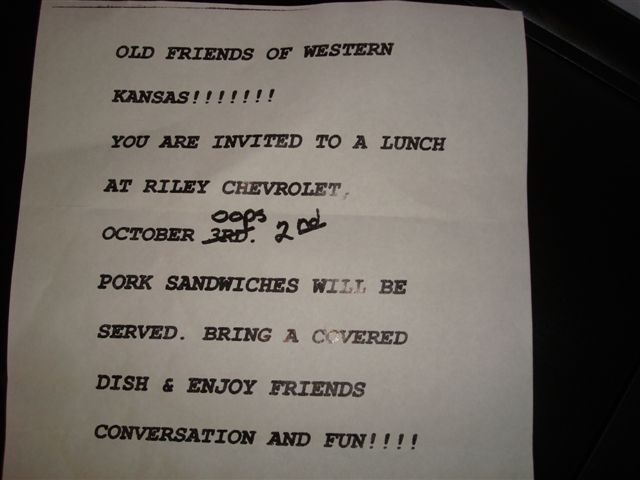 OLD FRIENDS OF WESTERN
KANSAS!!!!!!!
YOU ARE INVITED TO A LUNCH
AT RILEY CHEVROLET,
oops
OCTOBER 3RD. 2nd
PORK SANDWICHES WILL BE
SERVED. BRING A COVERED
DISH & ENJOY FRIENDS
CONVERSATION AND FUN!!!!